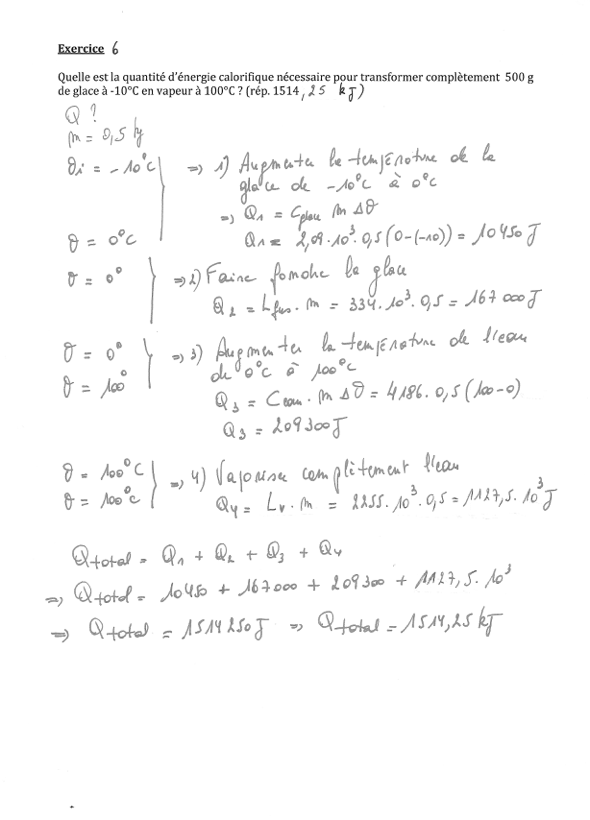 Exercice 6
Quelle est la quantité d'énergie calorifique nécessaire pour transformer complètement 500 g
de glace à -10°C en vapeur à 100°C ? (rép. 1514,25 kJ)
Q ?
m = 0,5 kg
θi = -10°C => 1) Augmenter la température de la
glace de -10°C à 0°C
=> Q1 = Cglace m Δθ
θ = 0°C Q1 = 2,09.10³.0,5(0-(-10)) = 10450 J
θ = 0° => 2) Faire fondre la glace
Q2 = Lfus. m = 334.10³.0,5 = 167 000 J
θ = 0° => 3) Augmenter la température de l'eau
θ = 100° de 0°C à 100°C
Q3 = Ceau. m Δθ = 4186.0,5(100-0)
Q3 = 209300 J
θ = 100°C => 4) Vaporiser complètement l'eau
θ = 100°C Q4 = Lv.m = 2255.10³.0,5 = 1127,5.10³ J
Qtotal = Q1 + Q2 + Q3 + Q4
=> Qtotal = 10450 + 167000 + 209300 + 1127,5.10³
=> Qtotal = 1514250 J => Qtotal = 1514,25 kJ